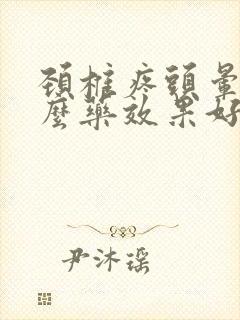 頚椎疼頭暈
麼藥效果好
尹沐瑶